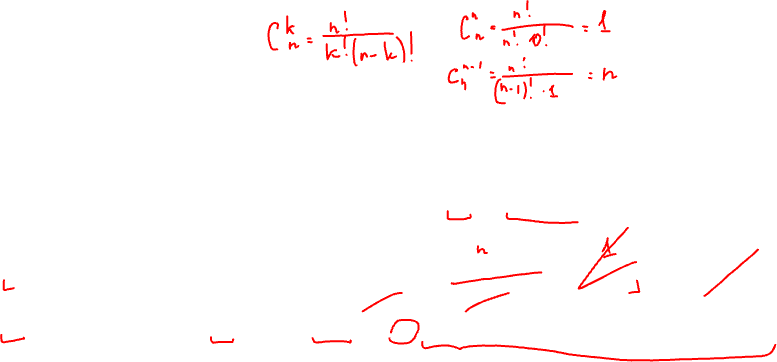 C_n^k = n! / k!(n-k)!
C_n^n = n! / n! · 0! = 1
C_n^{n-1} = n! / (n-1)! · 1 = n
n 1
0